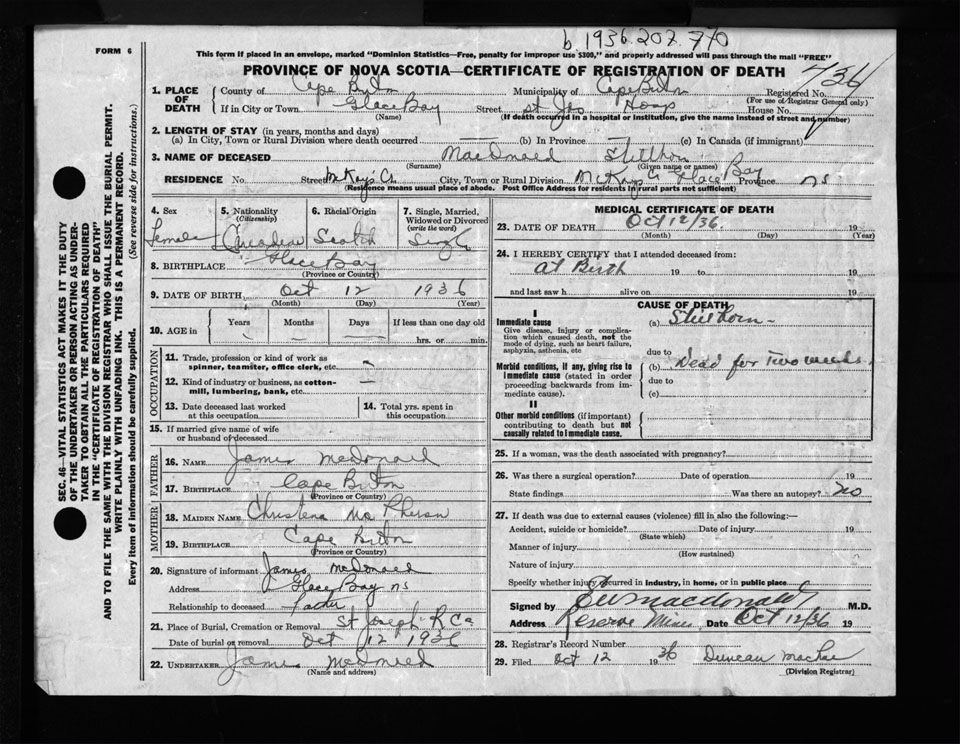 b 1936.207.710
FORM 6
This form if placed in an envelope, marked "Dominion Statistics—Free, penalty for improper use $300," and properly addressed will pass through the mail "FREE"
PROVINCE OF NOVA SCOTIA—CERTIFICATE OF REGISTRATION OF DEATH
736
1. PLACE OF DEATH
County of Cape Breton Municipality of Cape Breton Registered No.
(For use of Registrar General only)
If in City or Town Glace Bay Street St Jos Hosp House No.
(Name) (If death occurred in a hospital or institution, give the name instead of street and number)
2. LENGTH OF STAY (in years, months and days)
(a) In City, Town or Rural Division where death occurred — (b) In Province — (c) In Canada (if immigrant)
3. NAME OF DECEASED MacDonald Stillborn
(Surname) (Given name or names)
RESIDENCE No. Street McKays Cr. City, Town or Rural Division McKays Glace Bay Province NS
(Residence means usual place of abode. Post Office Address for residents in rural parts not sufficient)
SEC. 46—VITAL STATISTICS ACT MAKES IT THE DUTY
OF THE UNDERTAKER OR PERSON ACTING AS UNDER-
TAKER TO OBTAIN ALL THE PARTICULARS REQUIRED
IN THE "CERTIFICATE OF REGISTRATION OF DEATH"
AND TO FILE THE SAME WITH THE DIVISION REGISTRAR WHO SHALL ISSUE THE BURIAL PERMIT.
WRITE PLAINLY WITH UNFADING INK. THIS IS A PERMANENT RECORD.
Every item of information should be carefully supplied. (See reverse side for instructions.)
4. Sex 5. Nationality (Citizenship) 6. Racial Origin 7. Single, Married, Widowed or Divorced (write the word)
Female Canadian Scotch Single
8. BIRTHPLACE Glace Bay
(Province or Country)
9. DATE OF BIRTH Oct 12 1936
(Month) (Day) (Year)
10. AGE in Years Months Days If less than one day old
hrs. or min.
OCCUPATION
11. Trade, profession or kind of work as spinner, teamster, office clerk, etc. —
12. Kind of industry or business, as cotton-mill, lumbering, bank, etc. —
13. Date deceased last worked at this occupation
14. Total yrs. spent in this occupation
15. If married give name of wife or husband of deceased
FATHER
16. NAME James McDonald
17. BIRTHPLACE Cape Breton
(Province or Country)
MOTHER
18. MAIDEN NAME Christena McPherson
19. BIRTHPLACE Cape Breton
(Province or Country)
20. Signature of informant James McDonald
Address Glace Bay NS
Relationship to deceased Father
21. Place of Burial, Cremation or Removal St Joseph R C
Date of burial or removal Oct 12 1936
22. UNDERTAKER James McDonald
(Name and address)
MEDICAL CERTIFICATE OF DEATH
23. DATE OF DEATH Oct 12/36 19
(Month) (Day) (Year)
24. I HEREBY CERTIFY that I attended deceased from:
at Birth 19 to 19
and last saw h alive on 19
CAUSE OF DEATH
I
Immediate cause (a) Stillborn
Give disease, injury or complication which caused death, not the mode of dying, such as heart failure, asphyxia, asthenia, etc
due to
Morbid conditions, if any, giving rise to immediate cause (stated in order proceeding backwards from immediate cause). (b) Dead for two weeks
due to
(c)
II
Other morbid conditions (if important) contributing to death but not causally related to immediate cause.
25. If a woman, was the death associated with pregnancy?
26. Was there a surgical operation? Date of operation 19
State findings Was there an autopsy? no
27. If death was due to external causes (violence) fill in also the following:—
Accident, suicide or homicide? Date of injury 19
(State which)
Manner of injury
(How sustained)
Nature of injury
Specify whether injury occurred in industry, in home, or in public place
Signed by MacDonald M.D.
Address Reserve Mines Date Oct 12/36 19
28. Registrar's Record Number
29. Filed Oct 12 1936 Duncan MacRae
(Division Registrar)